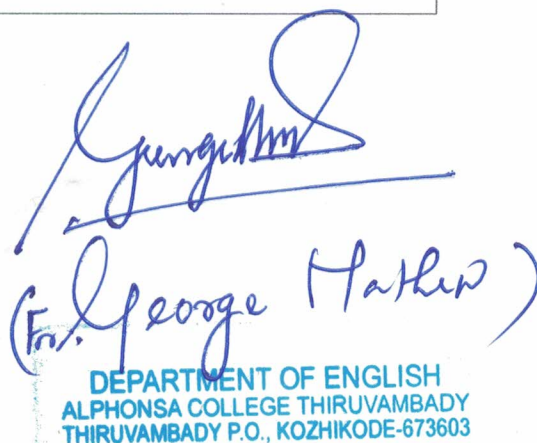 (Fr. George Mathew)
DEPARTMENT OF ENGLISH
ALPHONSA COLLEGE THIRUVAMBADY
THIRUVAMBADY P.O., KOZHIKODE-673603